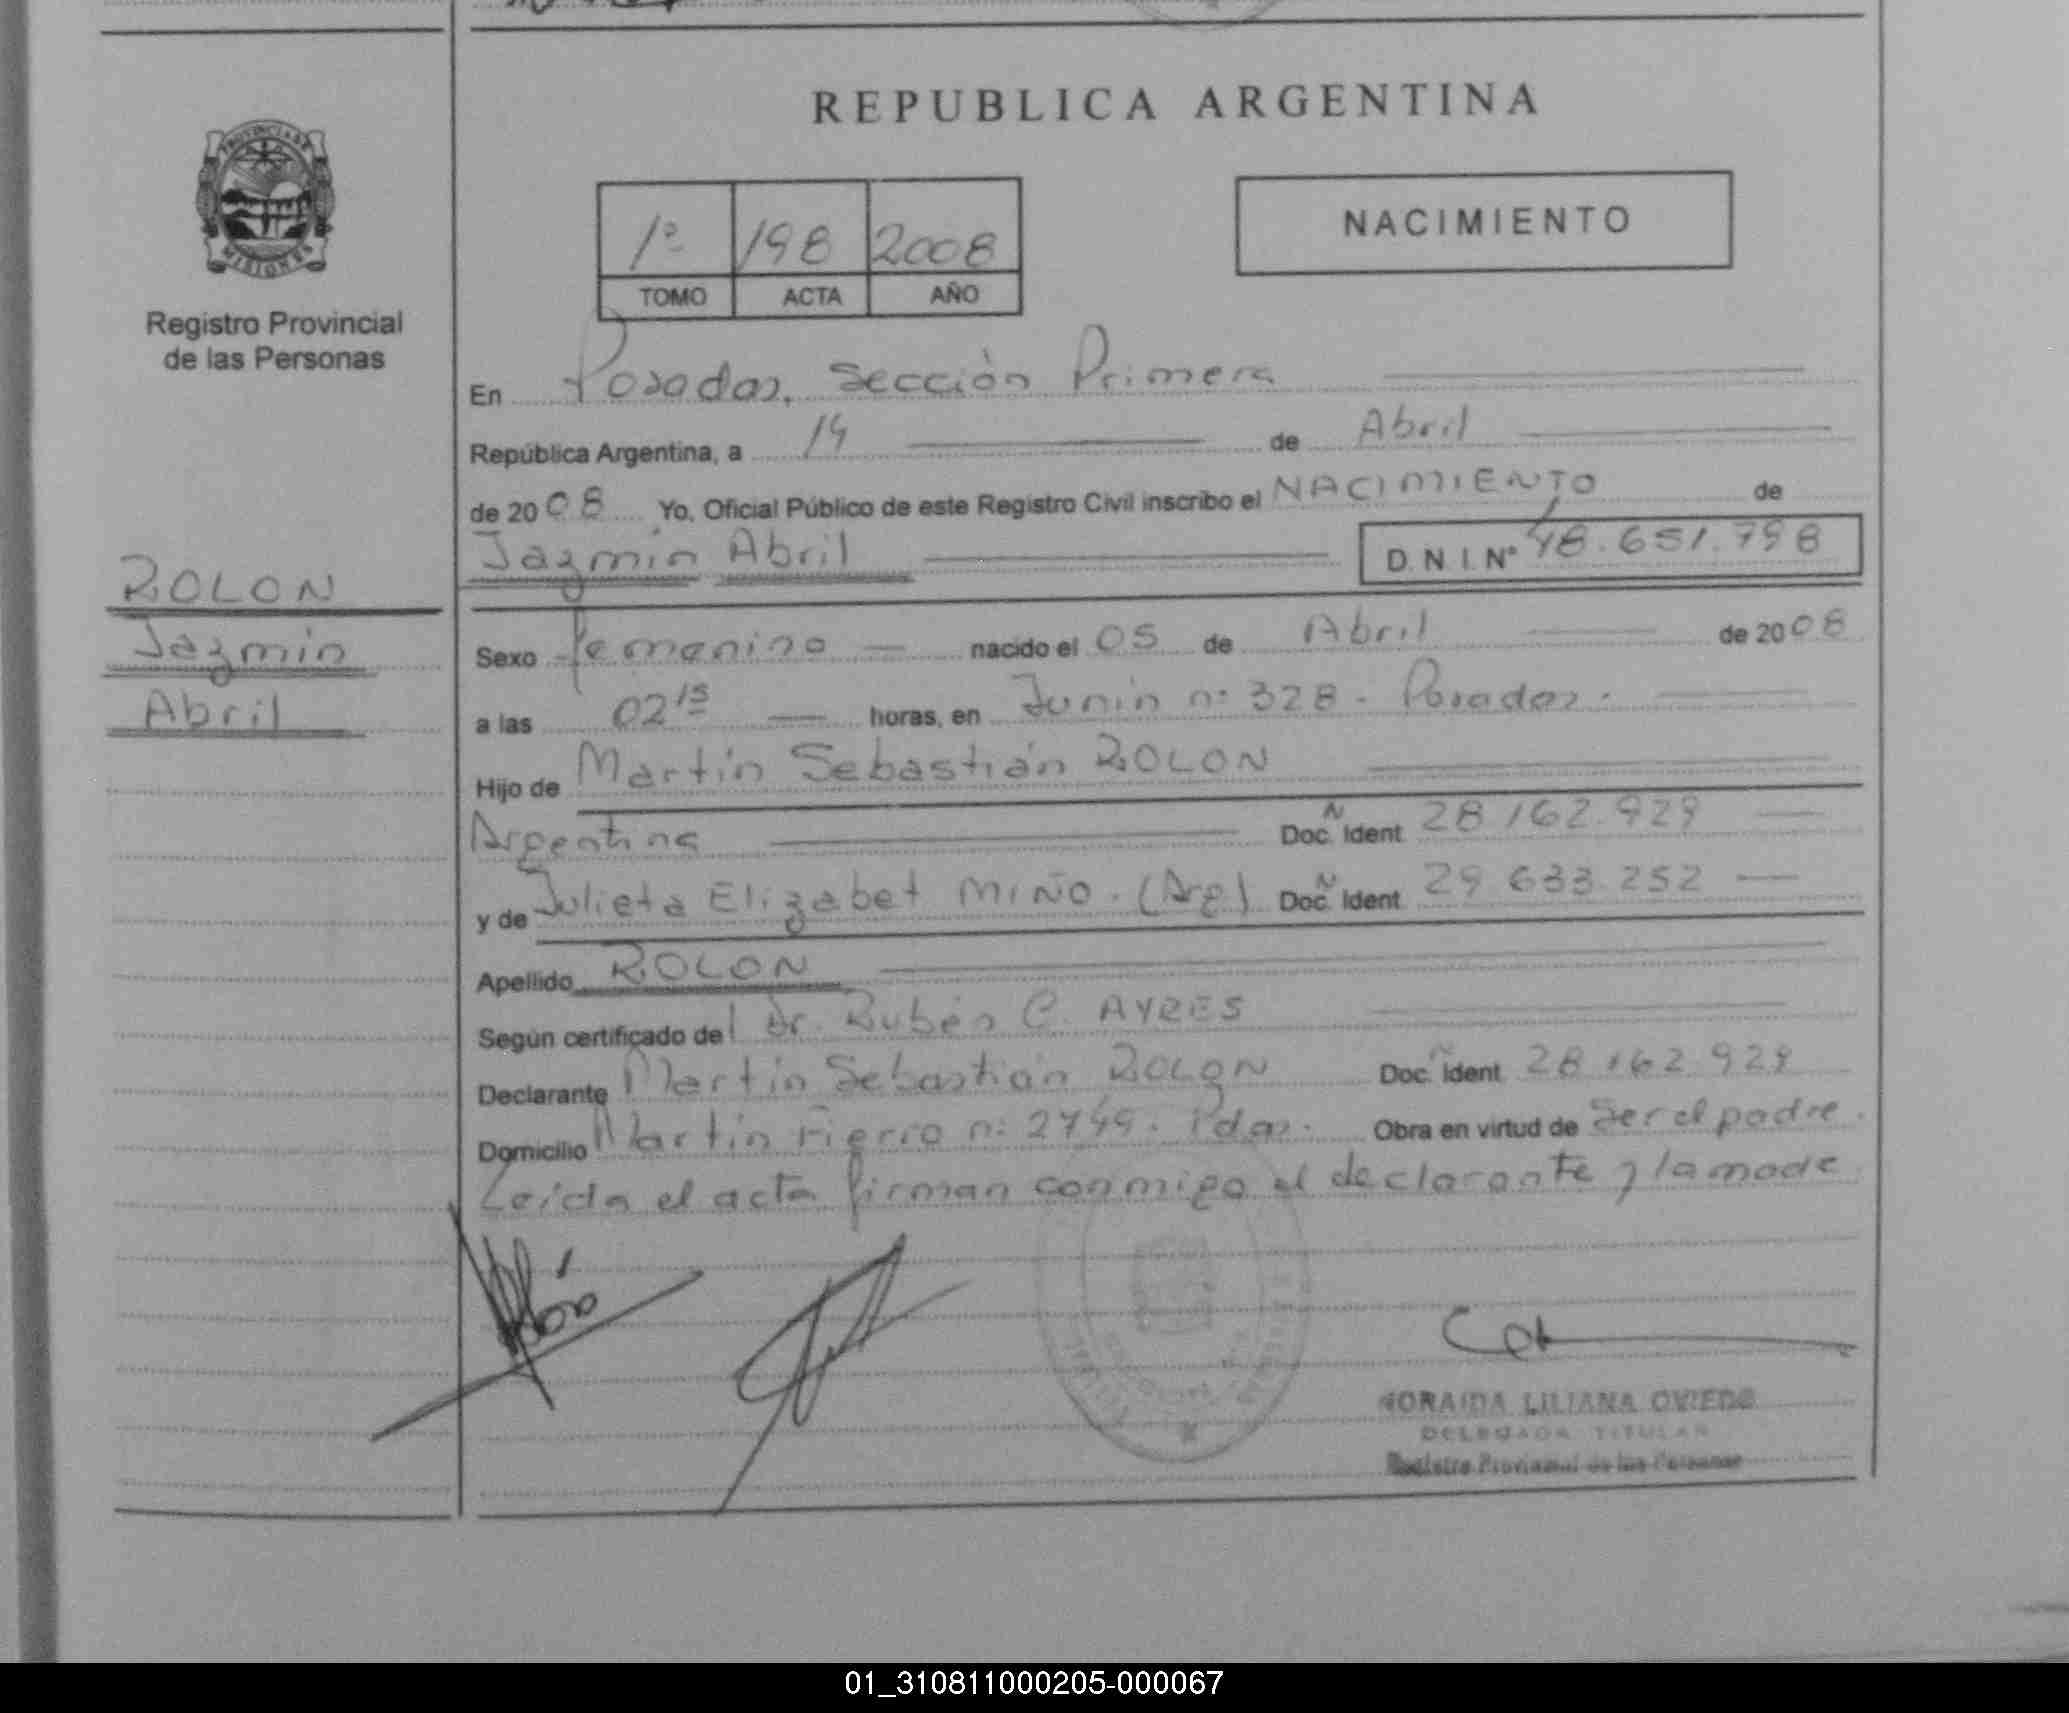 REPUBLICA ARGENTINA
PROVINCIA DE
MISIONES
Registro Provincial
de las Personas
1º 198 2008
TOMO ACTA AÑO
NACIMIENTO
En Posadas, Sección Primera
República Argentina, a 14 de Abril
de 2008 Yo, Oficial Público de este Registro Civil inscribo el NACIMIENTO de
Jazmín Abril D.N.I. Nº 48.651.798
ROLON
Jazmín
Abril
Sexo femenino nacido el 05 de Abril de 2008
a las 02 15 horas, en Junín nº 328 - Posadas.
Hijo de Martín Sebastián ROLON
Argentina Doc. Ident 28.162.929
y de Julieta Elizabet MIÑO. (Arg) Doc. Ident 29.633.252
Apellido ROLON
Según certificado del Dr. Rubén C. AYRES
Declarante Martín Sebastián ROLON Doc. Ident 28.162.929
Domicilio Martín Fierro nº Pdas. Obra en virtud de Ser el padre.
Leída el acta firman conmigo el declarante y la madre
NORAIDA LILIANA OVIEDO
DELEGADA TITULAR
Registro Provincial de las Personas
01_310811000205-000067